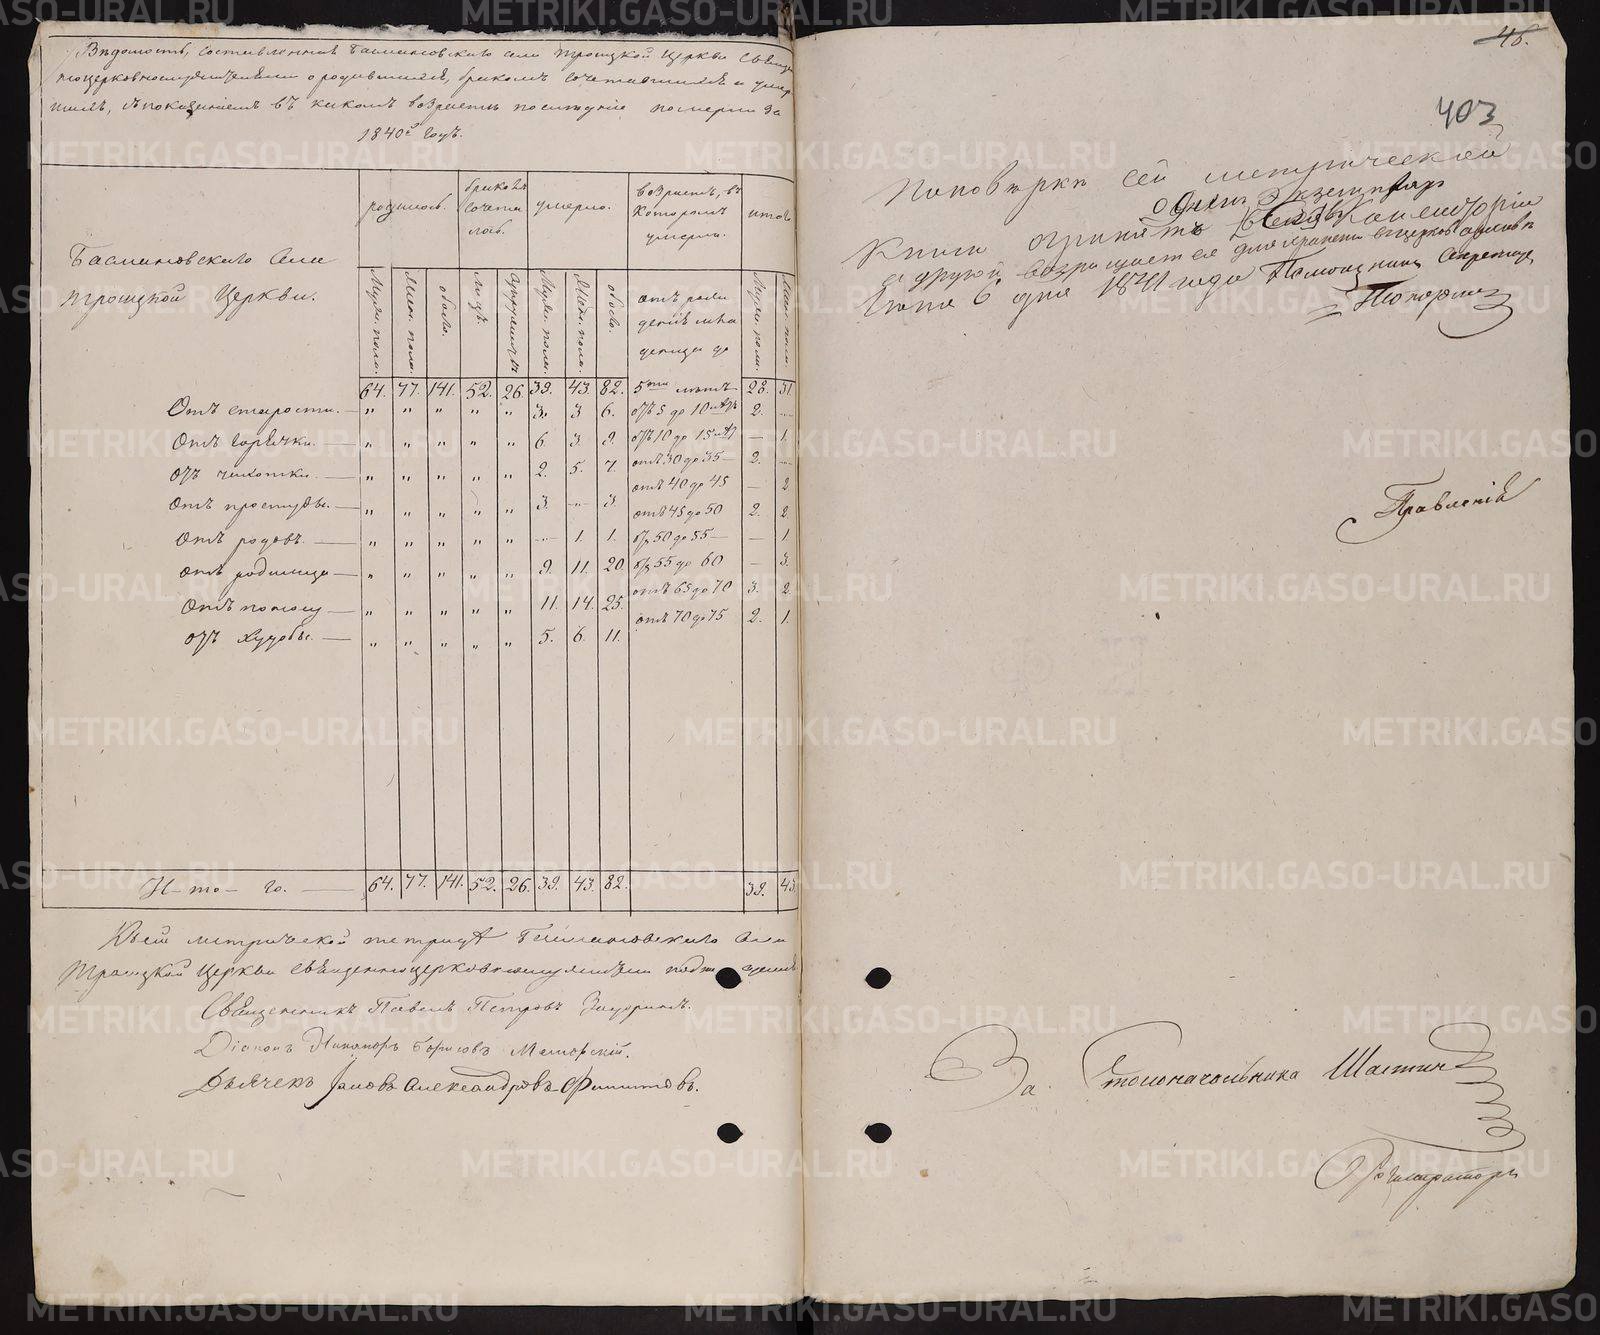 Ведомость, составленная Басмановскаго села Троицкой Церкви Свяще
нноцерковнослужителями о родившихся, браком сочетавшихся и умер
шихъ, съ показаніемъ въ какомъ возрасте последніе померли за
1840й годъ.
Басмановскаго Села
Троицкой Церкви.
родилось.
браковъ
сочета
лось.
умерло.
возрастъ, въ
котором
умерли.
итого
Мужс. пола.
Женс. пола.
обоего.
Муж. пола.
Женс. пола.
обоего.
отъ рож
денія мла
денца до
Муж. пола.
Жен. пола.
64. 77. 141. 52. 26. 39. 43. 82. 5ти летъ 28. 31
Отъ старости. — „ „ „ „ „ 3. 3 6. отъ 5 до 10 летъ 2. —
Отъ горячки. — „ „ „ „ „ 6 3. 9. отъ 10 до 15 — 1.
отъ чахотки. — „ „ „ „ „ 2. 5. 7. отъ 30 до 35 — 2. —
отъ 40 до 45 — 2
Отъ простуды. — „ „ „ „ „ 3. — 3. отъ 45 до 50 2. 2.
Отъ родовъ. — „ „ „ „ „ — 1. 1. отъ 50 до 55 — — 1.
отъ родимца — „ „ „ „ „ 9. 11. 20. отъ 55 до 60 — 3.
отъ 65 до 70 3. 2.
Отъ поносу — „ „ „ „ „ 11. 14. 25. отъ 70 до 75 2. 1.
отъ худобы. — „ „ „ „ „ 5. 6. 11.
И-то-го. — 64. 77. 141. 52. 26. 39. 43. 82. 39. 43
Къ сей метрической тетради Басмановскаго Села
Троицкой Церкви священноцерковнослужители
Священникъ Павелъ Петровъ
Діаконъ Никаноръ Борисовъ
Дьячекъ Александровъ
46.
403
По поверке сей метрической
одинъ экземпляръ
книги
а другой возращается для храненія въ церков архиве
6 дня 1841 года Помощникъ Секретаря
Правленія
За Столоначальника
Регистраторъ
METRIKI.GASO-URAL.RU